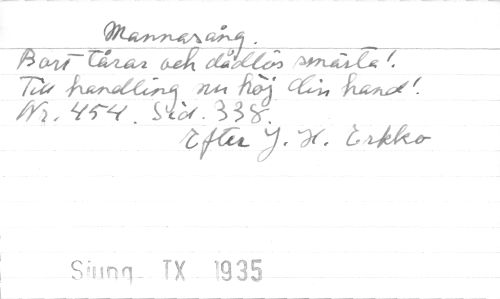 Mannasång.
Bort tårar och dådlös smärta!
Till handling nu höj din hand!
Nr. 454. Sid. 338.
Efter J. H. Erkko
Sjung IX 1935